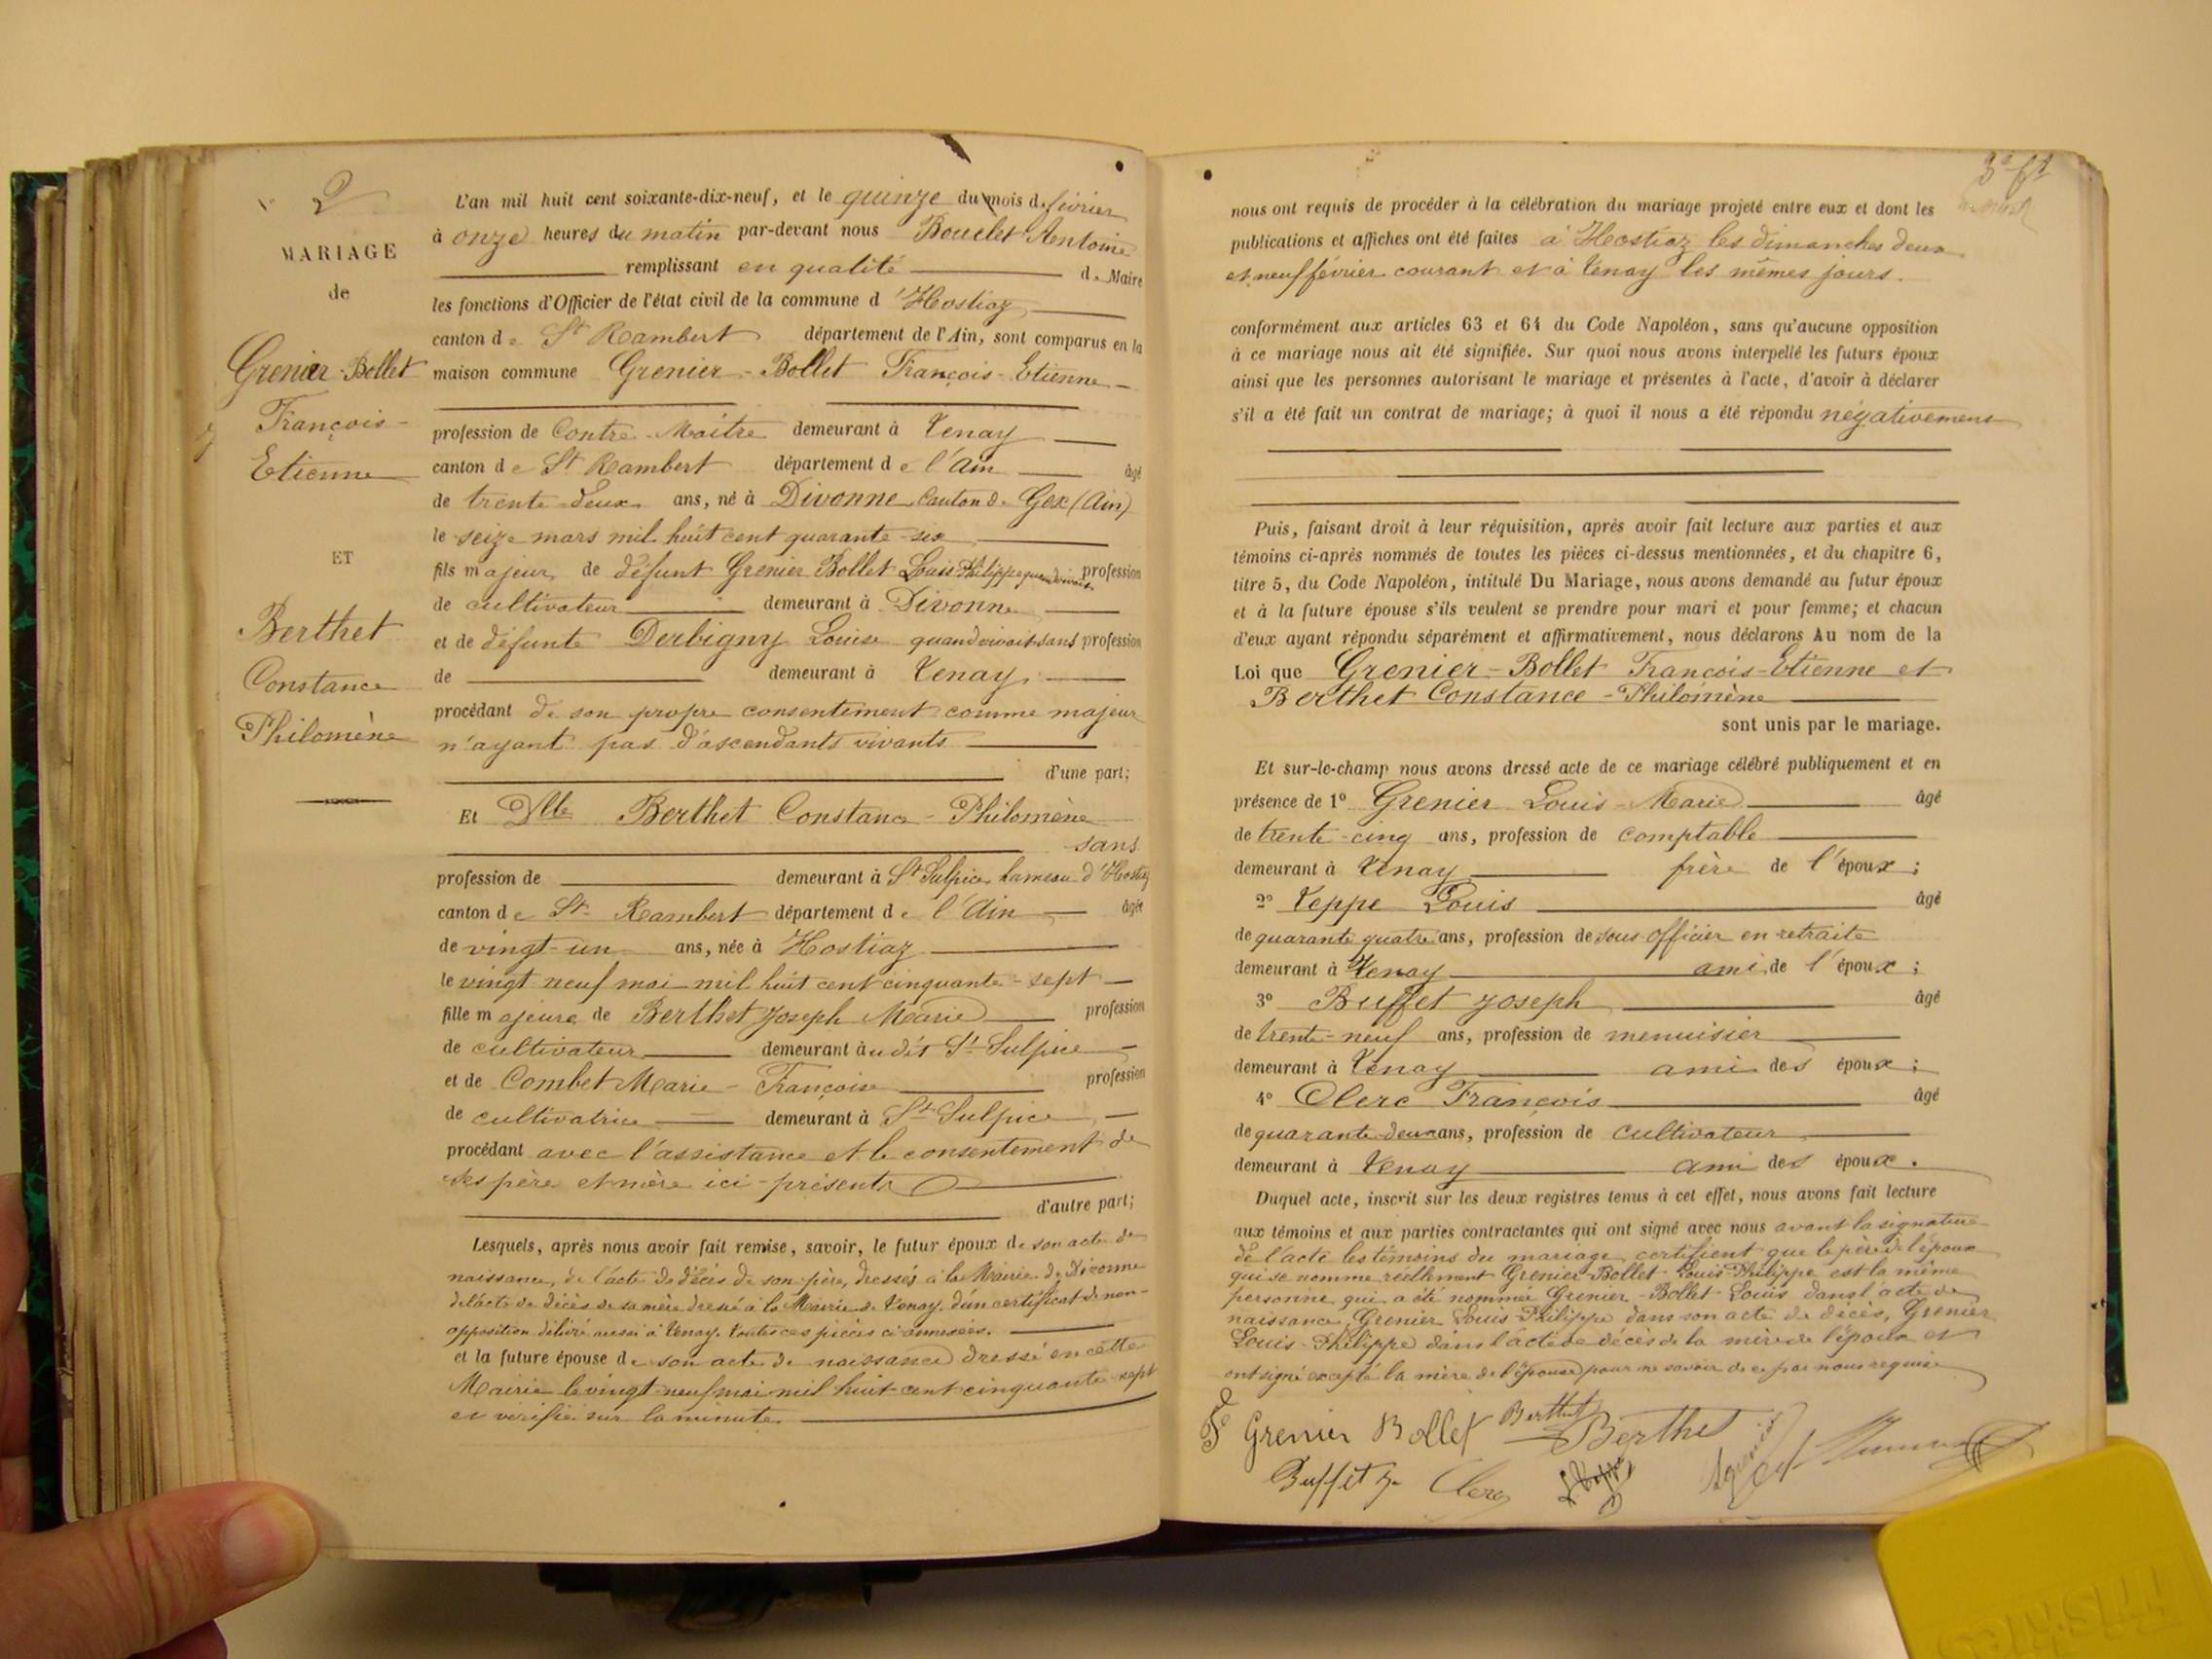 2
MARIAGE
de
Grenier-Bollet
François-
Etienne
ET
Berthet
Constance
Philomène
L'an mil huit cent soixante-dix-neuf, et le quinze du mois de février
à onze heures du matin par-devant nous Bouclet Antoine
remplissant en qualité de Maire
les fonctions d'Officier de l'état civil de la commune d'Hostiaz
canton de St Rambert département de l'Ain, sont comparus en la
maison commune Grenier-Bollet François-Etienne
profession de Contre-Maître demeurant à Tenay
canton de St Rambert département de l'Ain âgé
de trente-deux ans, né à Divonne Canton de Gex (Ain)
le seize mars mil huit cent quarante-six
fils majeur de défunt Grenier Bollet Louis Philippe quand vivait profession
de cultivateur demeurant à Divonne
et de défunte Derbigny Louise quand vivait sans profession
de demeurant à Tenay
procédant de son propre consentement comme majeur
n'ayant pas d'ascendants vivants
d'une part;
Et Dlle Berthet Constance-Philomène
sans
profession de demeurant à St Sulpice hameau d'Hostiaz
canton de St Rambert département de l'Ain âgée
de vingt-un ans, née à Hostiaz
le vingt neuf mai mil huit cent cinquante-sept
fille majeure de Berthet Joseph Marie profession
de cultivateur demeurant audit St Sulpice
et de Combet Marie-Françoise profession
de cultivatrice demeurant à St Sulpice
procédant avec l'assistance et le consentement de
ses père et mère ici-présents
d'autre part;
Lesquels, après nous avoir fait remise, savoir, le futur époux de son acte de
naissance, de l'acte de décès de son père, dressés à la Mairie de Divonne
de l'acte de décès de sa mère dressé à la Mairie de Tenay, d'un certificat de non-
opposition délivré aussi à Tenay. Toutes ces pièces ci-annexées.
et la future épouse de son acte de naissance dressé en cette
Mairie le vingt-neuf mai mil huit-cent cinquante-sept
et vérifié sur la minute.
nous ont requis de procéder à la célébration du mariage projeté entre eux et dont les
publications et affiches ont été faites à Hostiaz les dimanches deux
et neuf février courant et à Tenay les mêmes jours.
conformément aux articles 63 et 64 du Code Napoléon, sans qu'aucune opposition
à ce mariage nous ait été signifiée. Sur quoi nous avons interpellé les futurs époux
ainsi que les personnes autorisant le mariage et présentes à l'acte, d'avoir à déclarer
s'il a été fait un contrat de mariage; à quoi il nous a été répondu négativement
Puis, faisant droit à leur réquisition, après avoir fait lecture aux parties et aux
témoins ci-après nommés de toutes les pièces ci-dessus mentionnées, et du chapitre 6,
titre 5, du Code Napoléon, intitulé Du Mariage, nous avons demandé au futur époux
et à la future épouse s'ils veulent se prendre pour mari et pour femme; et chacun
d'eux ayant répondu séparément et affirmativement, nous déclarons Au nom de la
Loi que Grenier-Bollet François-Etienne et
Berthet Constance-Philomène
sont unis par le mariage.
Et sur-le-champ nous avons dressé acte de ce mariage célébré publiquement et en
présence de 1° Grenier Louis-Marie âgé
de trente-cinq ans, profession de comptable
demeurant à Tenay frère de l'époux;
2° Teppe Louis âgé
de quarante quatre ans, profession de sous-officier en retraite
demeurant à Tenay ami de l'époux;
3° Buffet Joseph âgé
de trente-neuf ans, profession de menuisier
demeurant à Tenay ami des époux;
4° Clerc François âgé
de quarante-deux ans, profession de cultivateur
demeurant à Tenay ami des époux.
Duquel acte, inscrit sur les deux registres tenus à cet effet, nous avons fait lecture
aux témoins et aux parties contractantes qui ont signé avec nous avant la signature
de l'acte les témoins du mariage certifient que le père de l'époux
qui se nomme réellement Grenier-Bollet Louis-Philippe est la même
personne qui a été nommée Grenier-Bollet Louis dans l'acte de
naissance, Grenier Louis Philippe dans son acte de décès, Grenier
Louis-Philippe dans l'acte de décès de la mère de l'époux et
ont signé excepté la mère de l'épouse pour ne savoir de ce par nous requise
F Grenier Bollet Berthet Berthet
Buffet J. Clerc